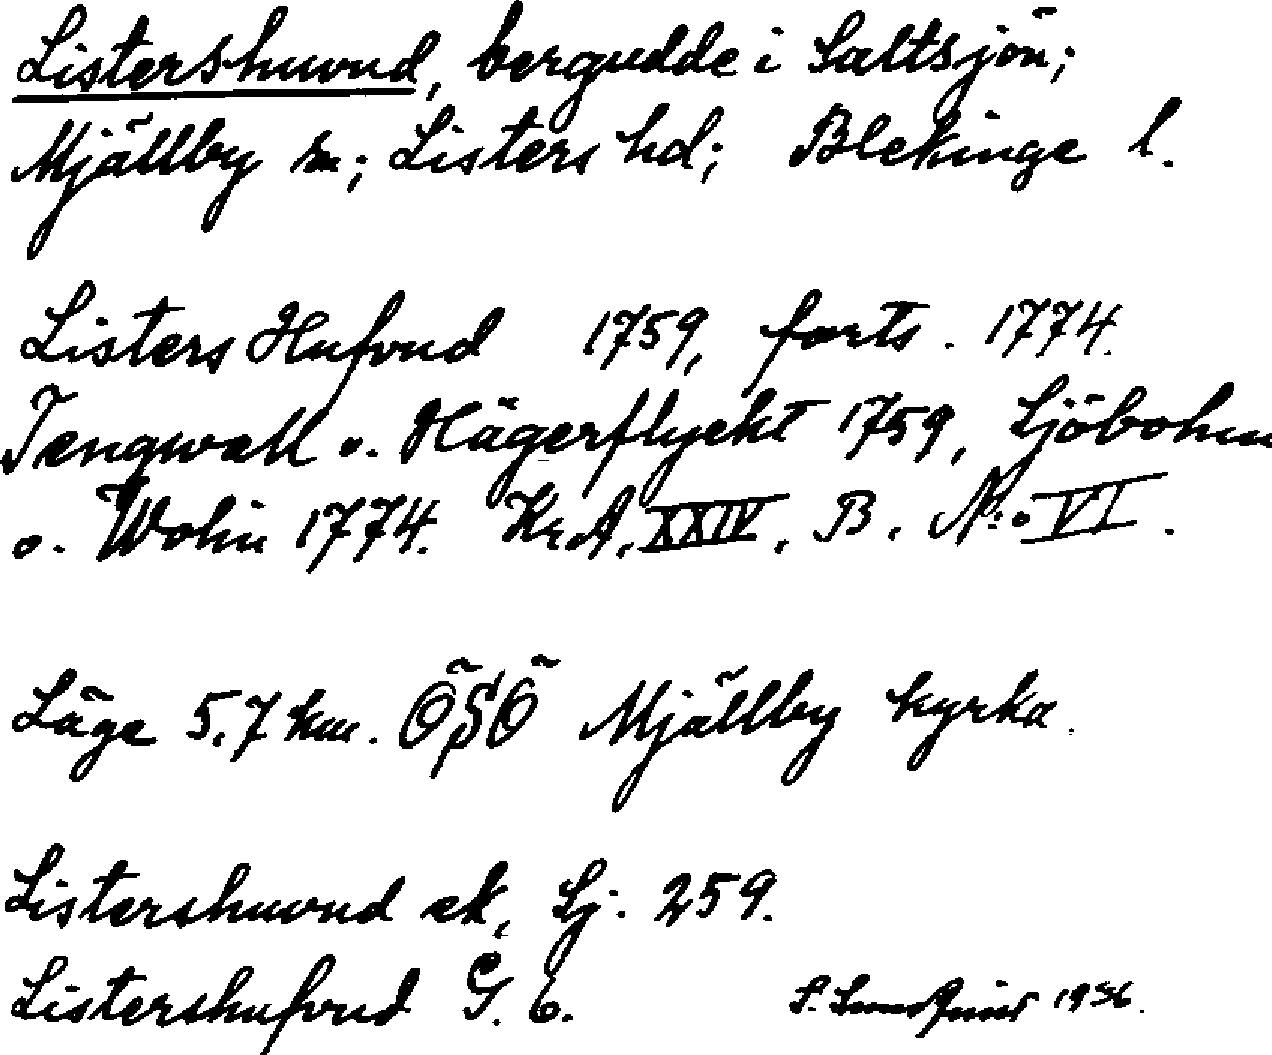 Listershuvud, bergudde i Saltsjön;
Mjällby sn; Listers hd; Blekinge l.
Listers Hufvud 1759, forts. 1774.
Tengwall o. Hägerflycht 1759, Sjöbohm
o. Wohn 1774. Kr.A. XXIV. B. No VI.
Läge 5,7 km. ÖSÖ Mjällby kyrka.
Listershuvud ek, Sj. 259.
Listershufvud G. 6.
S. 1936.